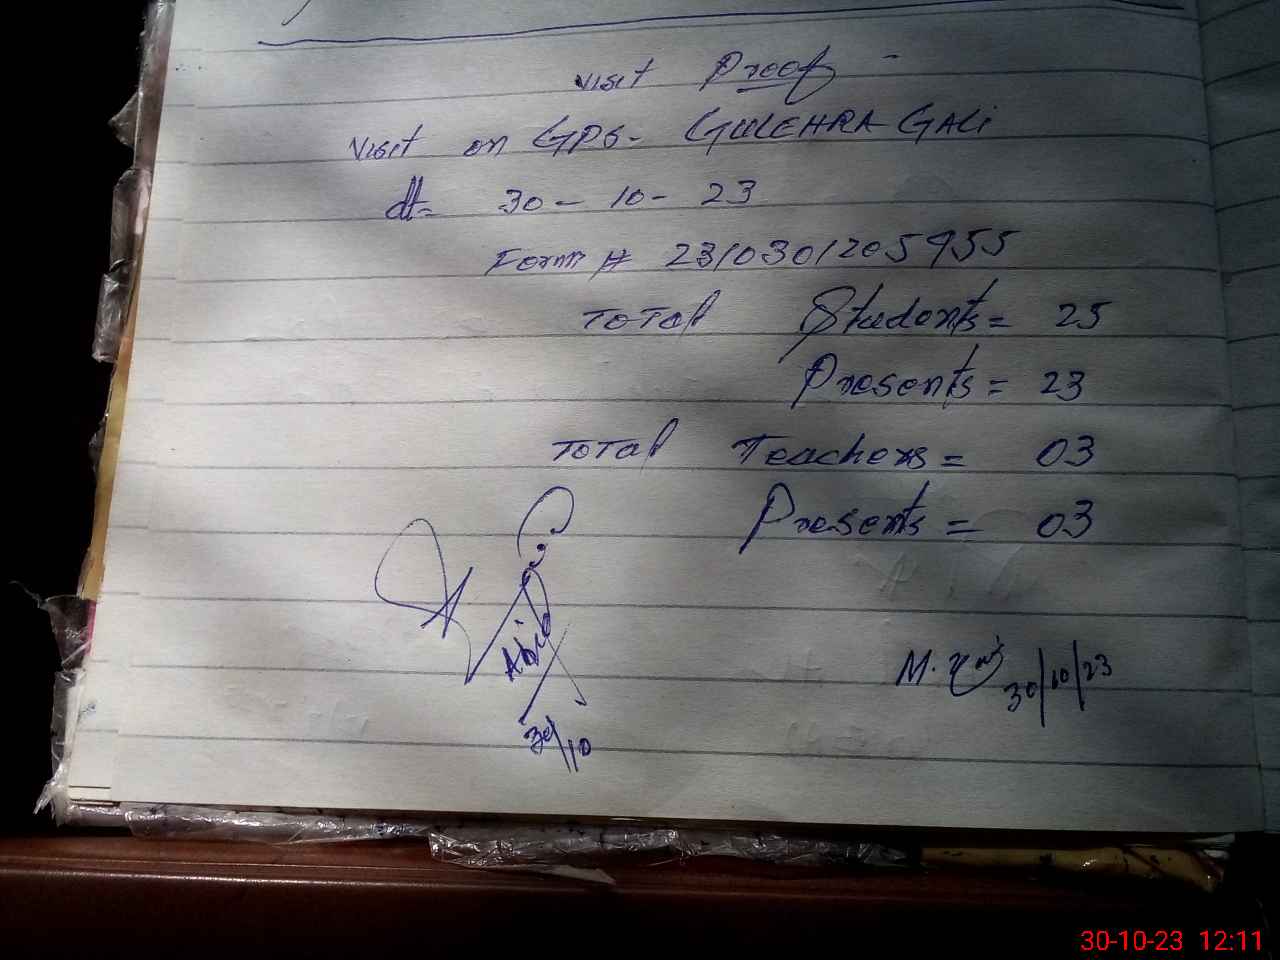 Visit Proof -
Visit on GPS- GULEHRA GALI
dt= 30 - 10 - 23
Form # 2310301205955
Total Students = 25
Presents = 23
Total Teachers = 03
Presents = 03
Abid
30/10
M.
30/10/23
30-10-23 12:11